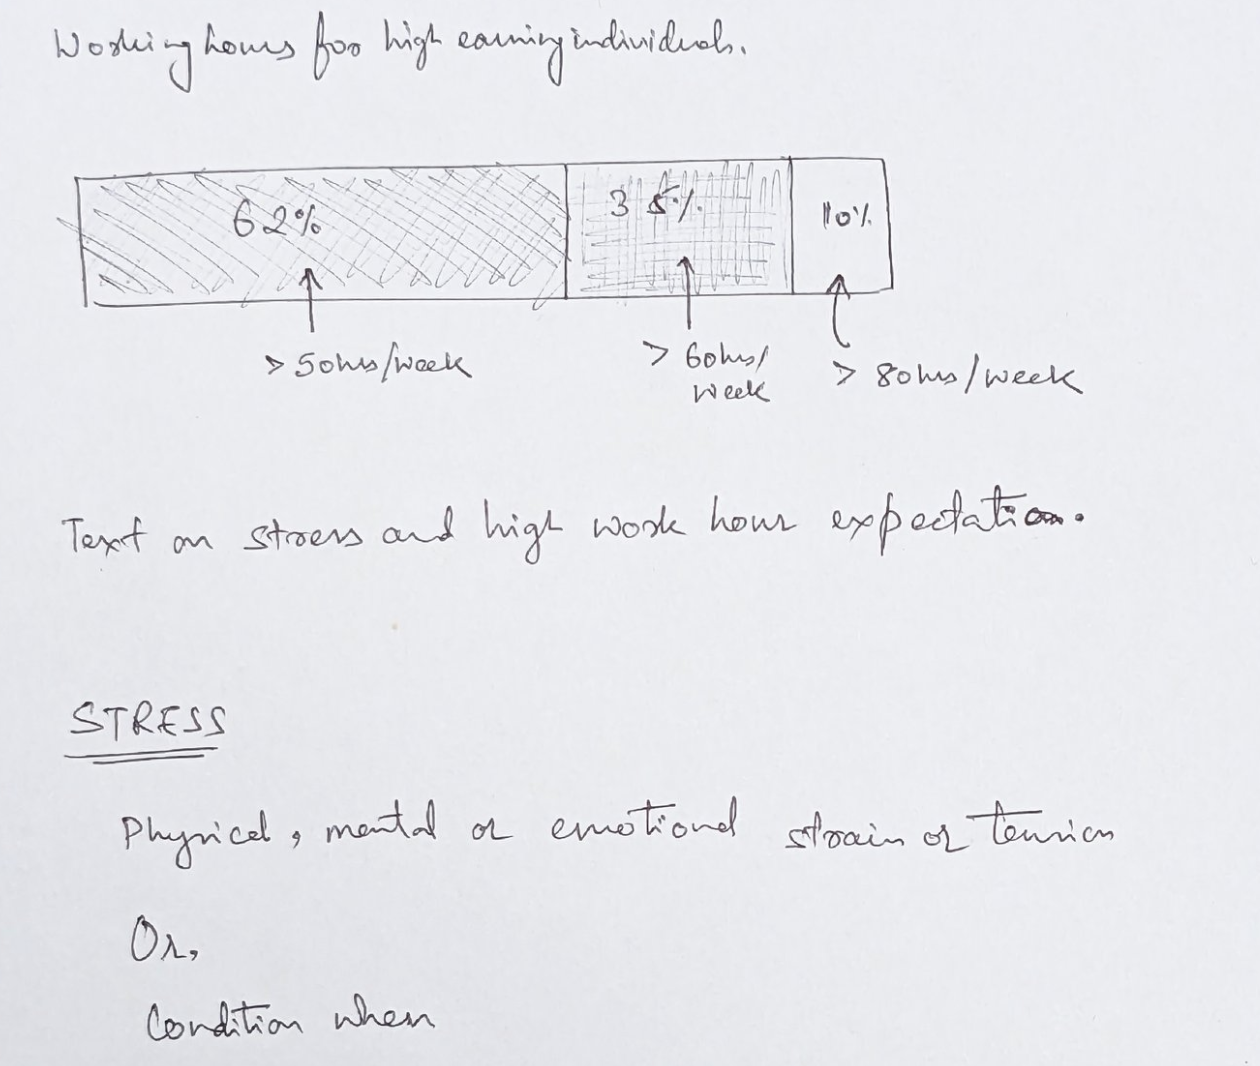 Working hours for high earning individuals.
62% 35% 10%
> 50hrs/week > 60hrs/
week > 80hrs/week
Text on stress and high work hour expectation.
STRESS
Physical, mental or emotional strain or tension
Or,
Condition when